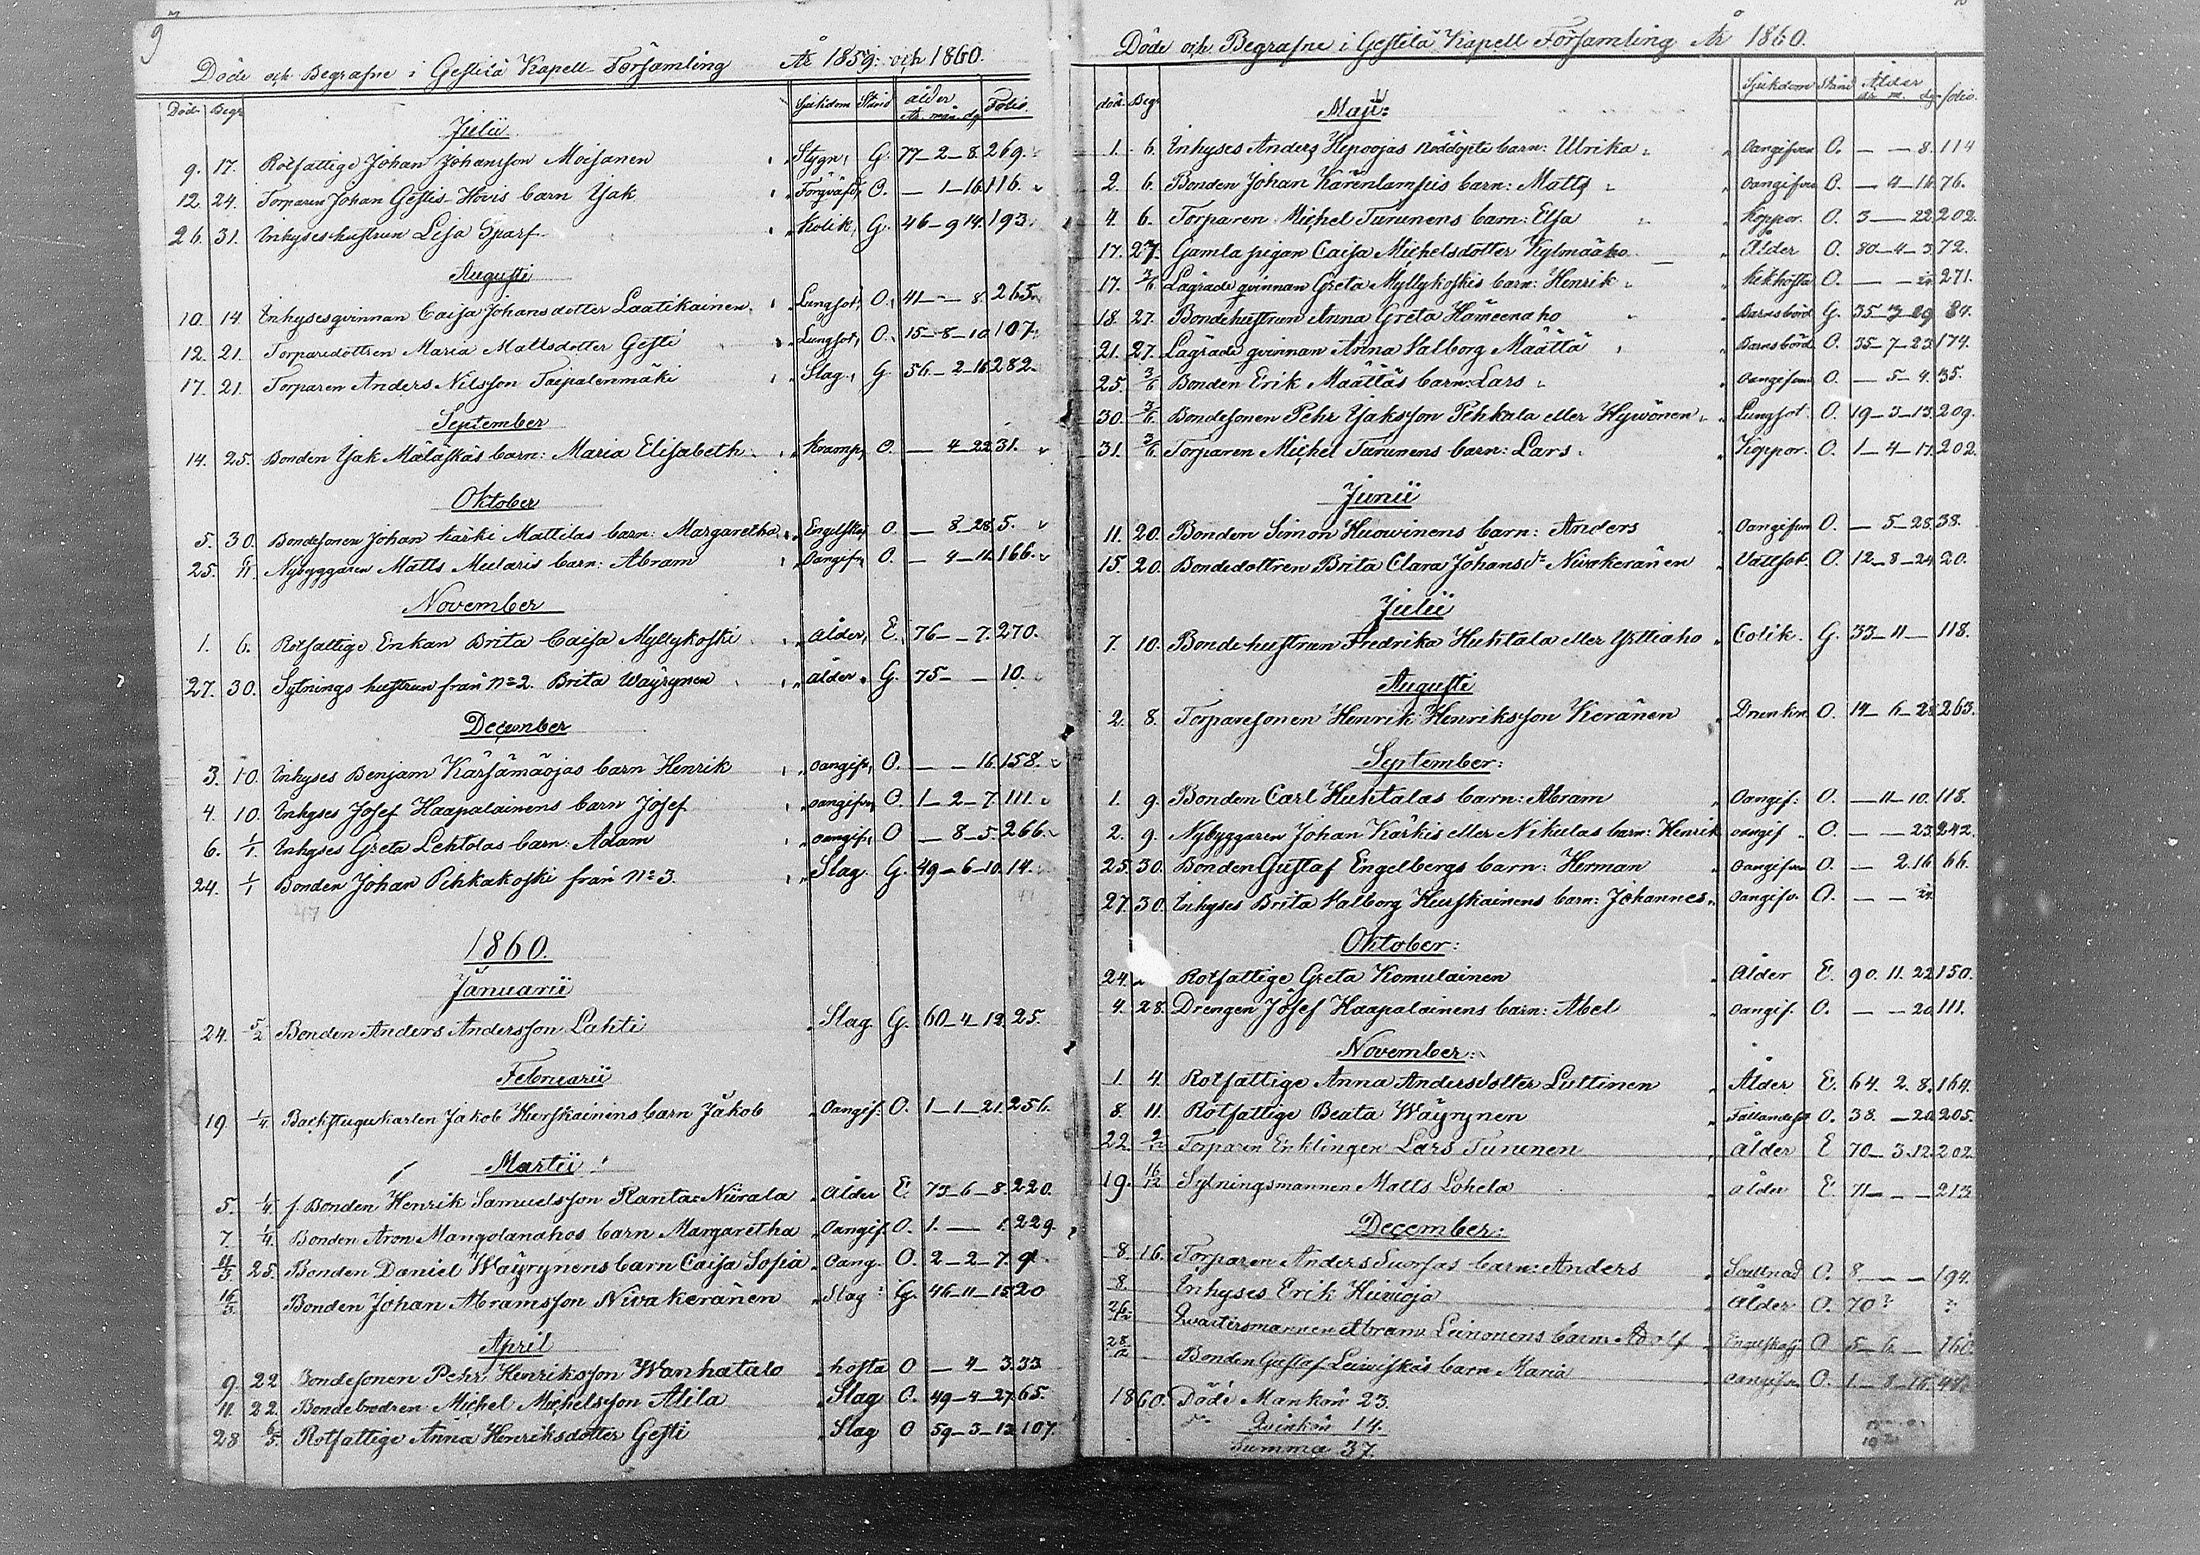 9
Döde och Begrafne i Gestilä Kapell Församling År 1859. och 1860.
Död. Begr. Sjukdom Stånd ålder år. mån. dg. Folio.
Julii
9. 17. Rotfattige Johan Johansson Moisanen Stygn, G. 77-2-8. 269.
12. 24. Torparen Johan Gestis Hovis barn Isak O. — 1-16. 116.
26. 31. Inhyseshustrun Lisa Sparf Kolik, G. 46-9-14. 193.
Augusti
10. 14. Inhysesqvinnan Caisa Johansdotter Laatikainen Lungsot, O. 41- - 8. 265.
12. 21. Torparedottren Maria Mattsdotter Gesti Lungsot, O. 15-8-10. 107.
17. 21. Torparen Anders Nilsson Taipalenmäki Slag, G. 56-2-16. 282.
September
14. 25. Bonden Isak Mäläskäs barn: Maria Elisabeth Kramp, O. — 4-22. 31.
Oktober
5. 30. Bondesonen Johan Kärki Mattilas barn: Margaretha O. — 8-28. 5.
25. Nybyggaren Matts Mularis barn: Abram Oangifv, O. — 4-11. 166.
November
1. 6. Rotfattige Enkan Brita Caisa Myllykoski Ålder, E. 76- - 7. 270.
27. 30. Sytnings hustrun från No 2. Brita Wäyrynen ålder, G. 75- - 10.
December
3. 10. Inhyses Benjam Kärsämäojas barn Henrik oangifv, O. — - 16. 158.
4. 10. Inhyses Josef Haapalainens barn Josef oangifven, O. 1-2-7. 111.
6. 1/1. Inhyses Greta Lehtolas barn: Adam oangifv, O — 8-5. 266.
24. 1/1 Bonden Johan Pihkakoski från No 3. Slag. G. 49-6-10. 14.
1860.
Januarii
24. 5/2 Bonden Anders Andersson Lahti Slag. G. 60-4-12. 25.
Februarii
19 1/4 Backstugukarlen Jakob Hurskainens barn Jakob Oangif. O. 1-1-21. 256.
Martii
5. 1/4. f. Bonden Henrik Samuelsson Ranta Niirala Ålder E. 73-6-8. 220.
7. 1/4. Bonden Aron Mangolanahos barn Margaretha Oangif. O. 1. — 1. 229.
11/3 25. Bonden Daniel Wäyrynens barn Caisa Sofia Oang. O. 2-2-7. 9
16/3. Bonden Johan Abramsson Nivakeränen Slag G. 46-11-15 20
April
9. 22 Bondesonen Pehr Henriksson Wanhatalo hosta O — 4-3. 33
11. 22. Bondebrodren Michel Michelsson Alila Slag O. 49-4-27. 65.
28 6/5. Rotfattige Anna Henriksdotter Gesti Slag O 59-3-13. 107.
Döde och Begrafne i Gestilä Kapell Församling År 1860.
död. Begr. Sjukdom Stånd Ålder år m. dg. folio.
Maji:
1. 6. Inhyses Anders Hepoojas nöddöpte barn: Ulrika Oangifven O. — - 8. 114
2. 6. Bonden Johan Kärenlampis barn: Matts Oangifven O. — 4-16. 76.
4. 6. Torparen Michel Turunens barn: Elsa Koppor. O. 3 — 22. 202.
17. 27. Gamla pigan Caisa Michelsdotter Kylmäaho Ålder O. 80-4-3. 72.
17. 3/6 Lägrade qvinnan Greta Myllykoskis barn: Henrik Kikhosta O. — - 271.
18. 27. Bondehustrun Anna Greta Hämeenaho Barnsbörd G. 35-3-29 84.
21. 27. Lägrade qvinnan Anna Valborg Määttä Barnsbörd O. 35-7-23. 174.
25. 3/6 Bonden Erik Määttäs barn: Lars Oangifven O. — 5-4. 35.
30. 3/6. Bondesonen Pehr Isaksson Pehkala eller Hywönen Lungsot. O. 19-3-13. 209.
31. Torparen Michel Turunens barn: Lars Koppor. O. 1-4-17. 202.
Junii
11. 20. Bonden Simon Huowinens barn: Anders Oangifven O. — 5-28. 38.
15. 20. Bondedottren Brita Clara Johansdr Nivakeränen Vattsot. O. 12-8-24. 20.
Julii
7. 10. Bondehustrun Fredrika Huhtala eller Ylliaho Colik. G. 33-11 — 118.
Augusti
2. 8. Torparesonen Henrik Henriksson Keränen Drunkn O. 14-6-28. 263.
September:
1. 9. Bonden Carl Huhtalas barn: Abram Oangif: O. — 11-10. 118.
2. 9. Nybyggaren Johan Kärkis eller Nikulas barn: Henrik oangif O. — - 23. 242.
25. 30. Bonden Gustaf Engelbergs barn: Herman Oangifven O. — 2.16 66.
27. 30. Inhyses Brita Valborg Hurskainens barn: Johannes. Oangifv. O. — -
Oktober:
24. Rotfattige Greta Komulainen Ålder E. 90. 11. 22. 150.
4. 28. Drengen Josef Haapalainens barn: Abel Oangif. O. — - 20. 111.
November:
1. 4. Rotfattige Anna Andersdotter Luttinen Ålder E. 64. 2. 8. 164.
8. 11. Rotfattige Beata Wäyrynen Fallandesot O. 38. — 20. 205.
22. Torparen Enklingen Lars Turunen Ålder E 70-3.12. 202.
19. 16/12 Sytningsmannen Matts Lohela ålder E. 71 - - - 213
December:
8. 16. Torparen Anders Suorsas barn: Anders O. 8 - - - 194.
8. Inhyses Erik Huuoja Ålder O. 70? ?
26/12 Qvartersmannen Abram Leinonens barn: Adolf O 5-6 — 160.
28/12 Bonden Gustaf Leiviskäs barn Maria oangifven O. 1-8-
1860. Döde Mankön 23.
do Qvinkön 14.
Summa 37.